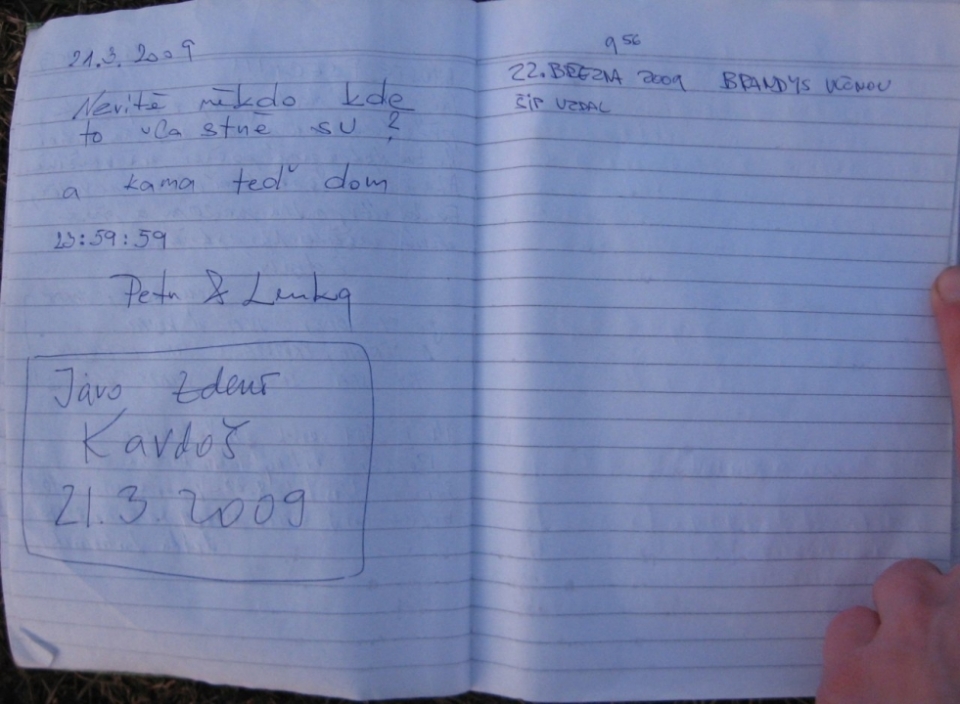 21.3.2009
Nevitě někdo kde
to vlastně su?
a kama teď dom
23:59:59
Petr & Lenka
Járo Zdenr
Kardoš
21.3.2009
9 56
22. BŘEZNA 2009 BRANDÝS
ŠÍP VZDAL